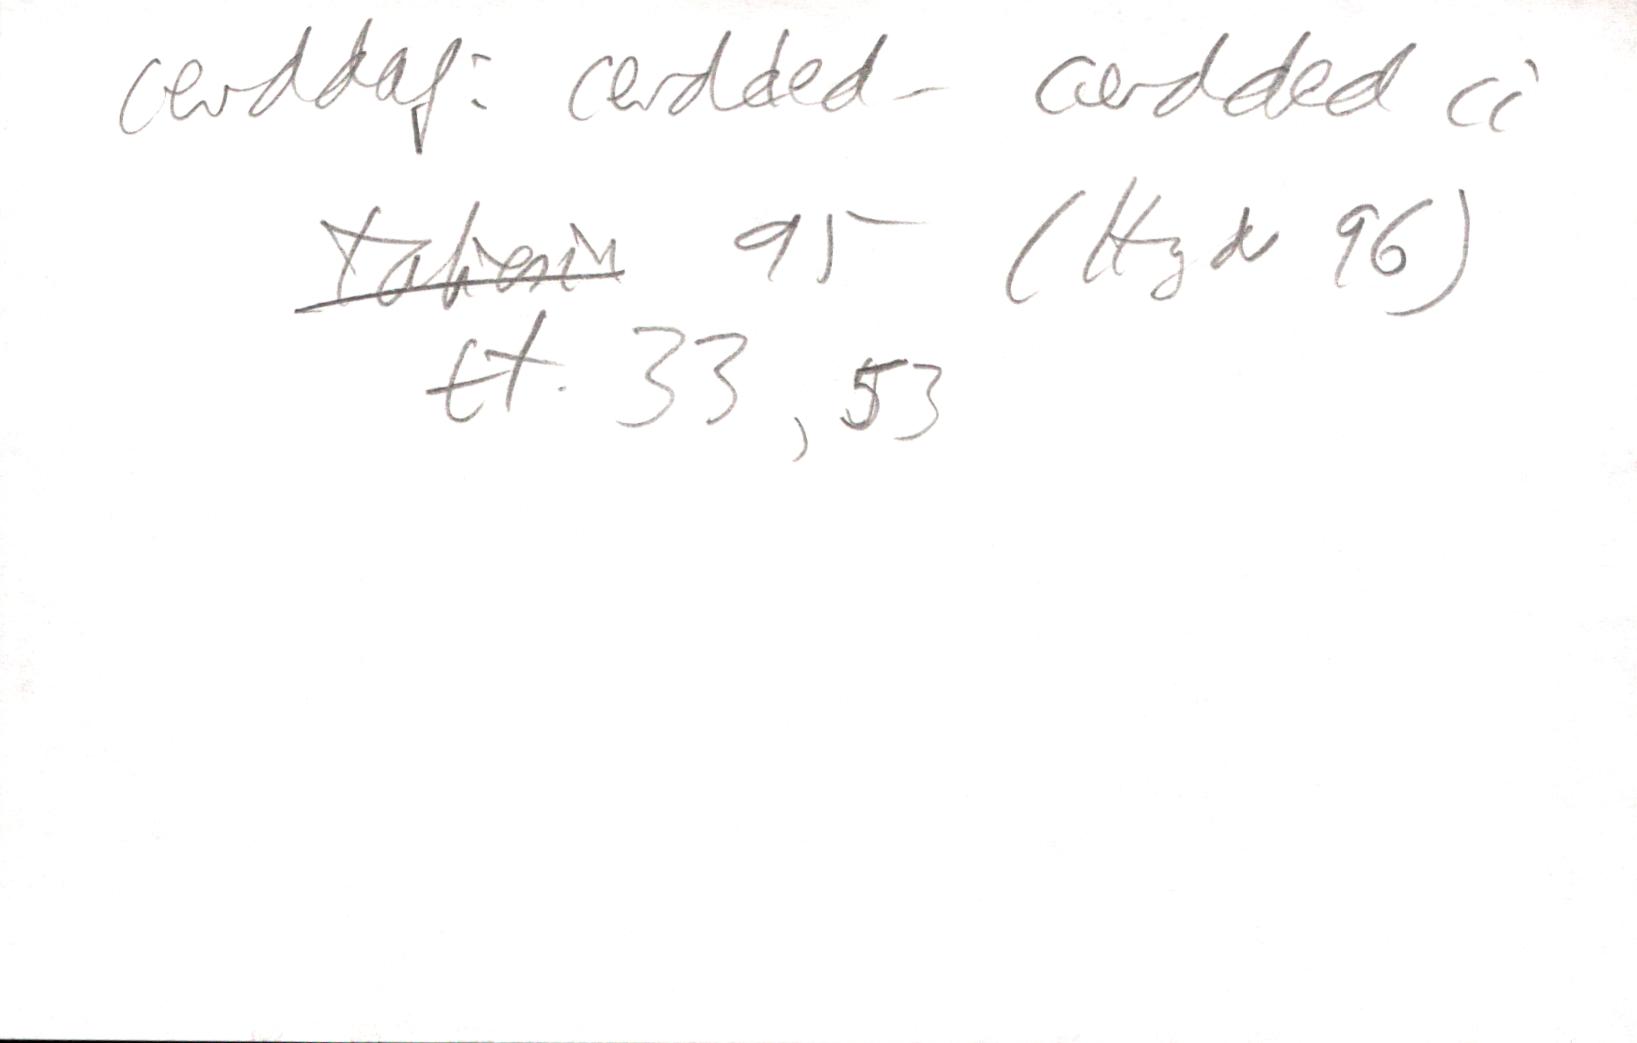 cerddaf: cerdded - cerdded ci
Taliesin 95 (Hyd 96)
tt. 33, 53